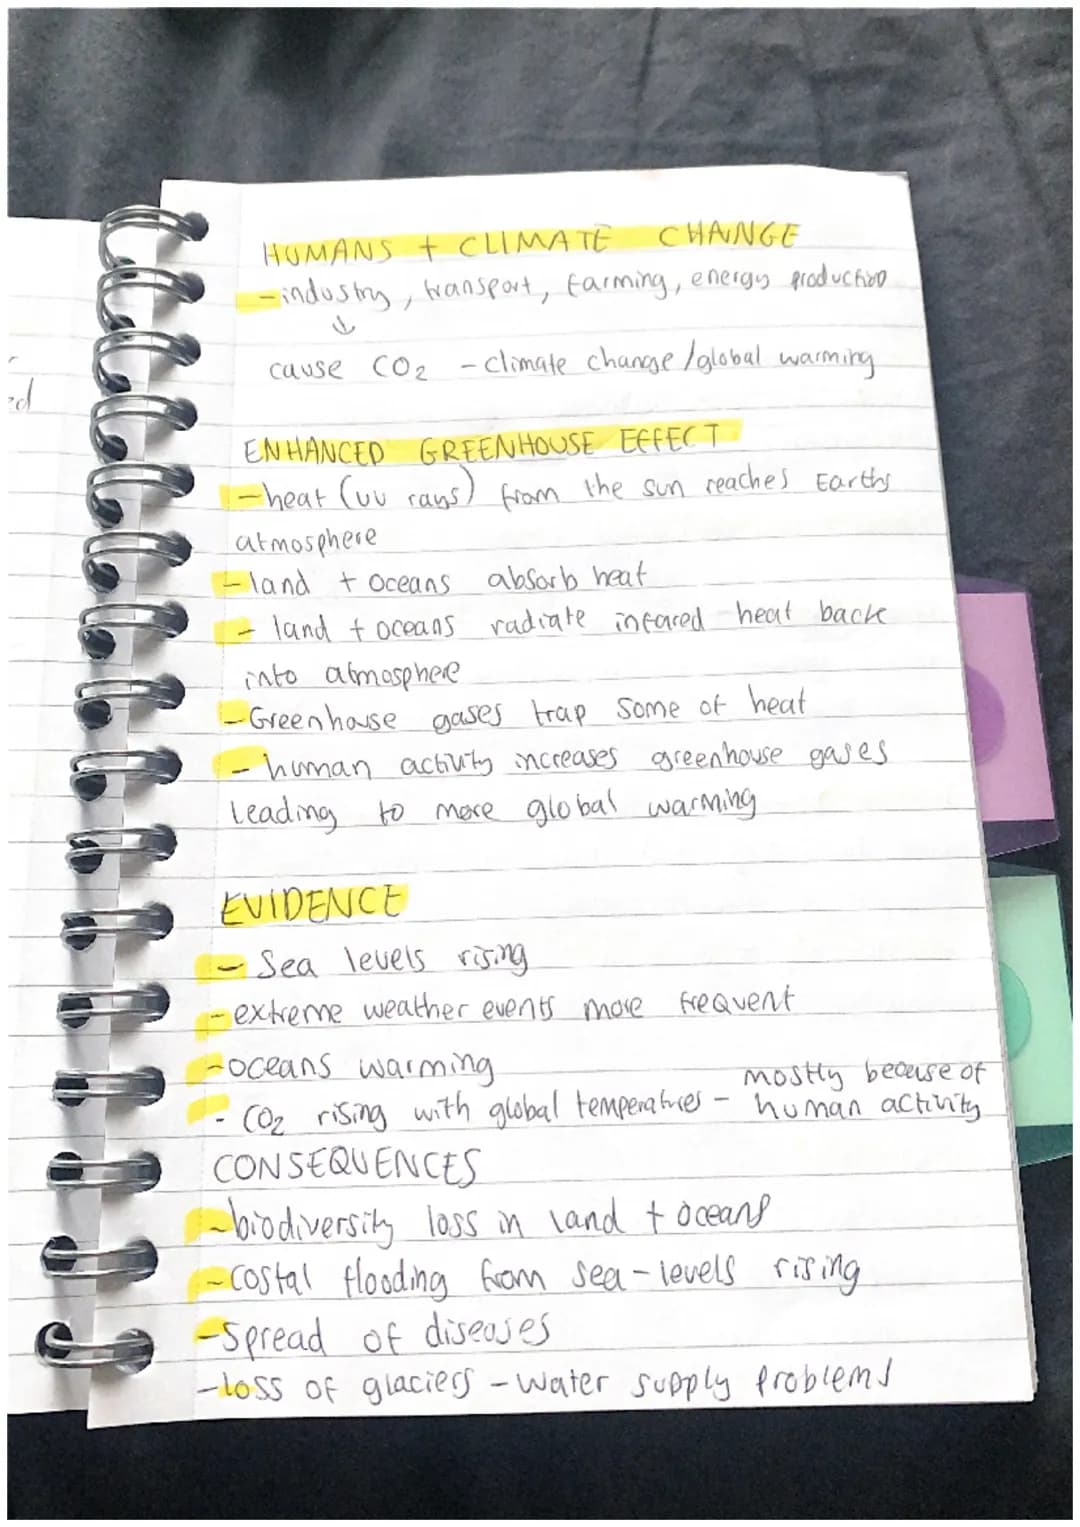 HUMANS + CLIMATE CHANGE
- industry, transport, farming, energy production
↓
cause CO₂ - climate change / global warming
ENHANCED GREENHOUSE EFFECT
- heat (uv rays) from the sun reaches Earths
atmosphere
- land + oceans absorb heat
- land + oceans radiate infared heat back
into atmosphere
- Greenhouse gases trap some of heat
- human activity increases greenhouse gases
leading to more global warming
EVIDENCE
- Sea levels rising
- extreme weather events more frequent
- oceans warming
- CO₂ rising with global temperatures - mostly because of
human activity
CONSEQUENCES
- biodiversity loss in land + oceans
- costal flooding from sea-levels rising
- spread of diseases
- loss of glaciers - water supply problems